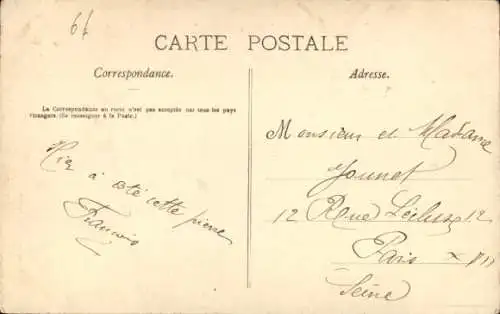 66
CARTE POSTALE
Correspondance.
Adresse.
La Correspondance au recto n'est pas acceptée par tous les pays
étrangers. (Se renseigner à la Poste.)
Hier
à été cette pierre
François
Monsieur et Madame
Jounot
12 Rue 12
Paris XVII
Seine